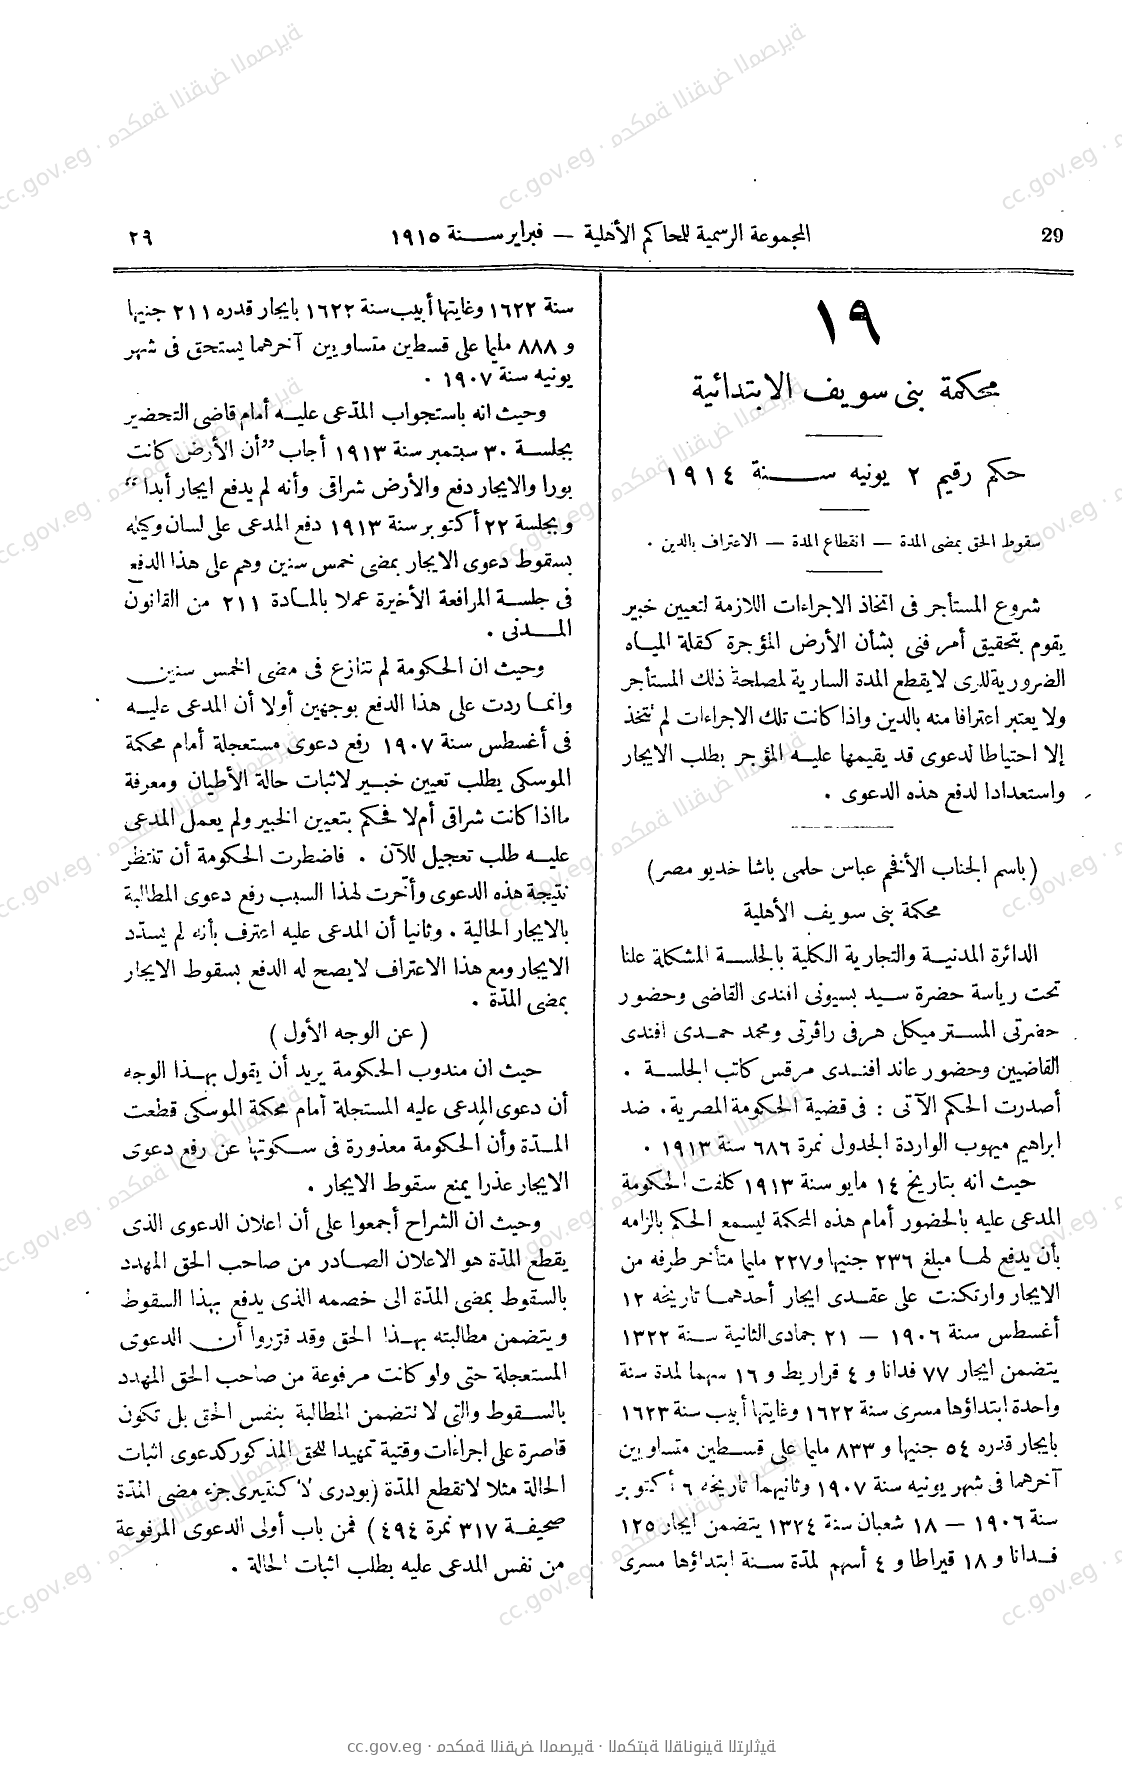 29
المجموعة الرسمية للمحاكم الأهلية — فبراير سنة ١٩١٥
٢٩
١٩
محكمة بنى سويف الابتدائية
حكم رقيم ٢ يونيه سنة ١٩١٤
سقوط الحق بمضى المدة — انقطاع المدة — الاعتراف بالدين .
شروع المستأجر فى اتخاذ الاجراءات اللازمة لتعيين خبير
يقوم بتحقيق أمر فنى بشأن الأرض المؤجرة كقلة المياه
الضرورية للرى لا يقطع المدة السارية لمصلحة ذلك المستأجر
ولا يعتبر اعترافا منه بالدين واذا كانت تلك الاجراءات لم تتخذ
إلا احتياطا لدعوى قد يقيمها عليه المؤجر بطلب الايجار
واستعدادا لدفع هذه الدعوى .
(باسم الجناب الأفخم عباس حلمى باشا خديو مصر)
محكمة بنى سويف الأهلية
الدائرة المدنية والتجارية الكلية بالجلسة المشكلة علنا
تحت رياسة حضرة سيد بسيونى افندى القاضى وحضور
حضرتى المستر ميكل هرفى رافرتى ومحمد حمدى افندى
القاضيين وحضور عاند افندى مرقس كاتب الجلسة .
أصدرت الحكم الآتى : فى قضية الحكومة المصرية . ضد
ابراهيم ميهوب الواردة الجدول نمرة ٦٨٦ سنة ١٩١٣ .
حيث انه بتاريخ ١٤ مايو سنة ١٩١٣ كلفت الحكومة
المدعى عليه بالحضور أمام هذه المحكمة ليسمع الحكم بالزامه
بأن يدفع لها مبلغ ٢٣٦ جنيها و ٢٢٧ مليما متأخر طرفه من
الايجار وارتكنت على عقدى ايجار أحدهما تاريخه ١٢
أغسطس سنة ١٩٠٦ — ٢١ جمادى الثانية سنة ١٣٢٢
يتضمن ايجار ٧٧ فدانا و ٤ قراريط و ١٦ سهما لمدة سنة
واحدة ابتداؤها مسرى سنة ١٦٢٢ وغايتها أبيب سنة ١٦٢٣
بايجار قدره ٥٤ جنيها و ٨٣٣ مليما على قسطين متساويين
آخرهما فى شهر يونيه سنة ١٩٠٧ وثانيهما تاريخه ٦ أكتوبر
سنة ١٩٠٦ — ١٨ شعبان سنة ١٣٢٤ يتضمن ايجار ١٢٥
فدانا و ١٨ قيراطا و ٤ أسهم لمدة سنة ابتداؤها مسرى
سنة ١٦٢٢ وغايتها أبيب سنة ١٦٢٢ بايجار قدره ٢١١ جنيها
و ٨٨٨ مليما على قسطين متساويين آخرهما يستحق فى شهر
يونيه سنة ١٩٠٧ .
وحيث انه باستجواب المدّعى عليه أمام قاضى التحضير
بجلسة ٣٠ سبتمبر سنة ١٩١٣ أجاب ”أن الأرض كانت
بورا والايجار دفع والأرض شراقى وأنه لم يدفع ايجار أبدا“
وبجلسة ٢٢ أكتوبر سنة ١٩١٣ دفع المدعى على لسان وكيله
بسقوط دعوى الايجار بمضى خمس سنين وهم على هذا الدفع
فى جلسة المرافعة الأخيرة عملا بالمادة ٢١١ من القانون
المدنى .
وحيث ان الحكومة لم تنازع فى مضى الخمس سنين
وانما ردت على هذا الدفع بوجهين أولا أن المدعى عليه
فى أغسطس سنة ١٩٠٧ رفع دعوى مستعجلة أمام محكمة
الموسكى يطلب تعيين خبير لاثبات حالة الأطيان ومعرفة
ما اذا كانت شراقى أم لا فحكم بتعيين الخبير ولم يعمل المدعى
عليه طلب تعجيل للآن . فاضطرت الحكومة أن تنتظر
نتيجة هذه الدعوى وأخّرت لهذا السبب رفع دعوى المطالبة
بالايجار الحالية . وثانيا أن المدعى عليه اعترف بأنه لم يسدّد
الايجار ومع هذا الاعتراف لا يصح له الدفع بسقوط الايجار
بمضى المدّة .
( عن الوجه الأول )
حيث ان مندوب الحكومة يريد أن يقول بهذا الوجه
أن دعوى المدعى عليه المستعجلة أمام محكمة الموسكى قطعت
المدّة وأن الحكومة معذورة فى سكوتها عن رفع دعوى
الايجار عذرا يمنع سقوط الايجار .
وحيث ان الشراح أجمعوا على أن اعلان الدعوى الذى
يقطع المدّة هو الاعلان الصادر من صاحب الحق المهدد
بالسقوط بمضى المدّة الى خصمه الذى يدفع بهذا السقوط
ويتضمن مطالبته بهذا الحق وقد قرّروا أن الدعوى
المستعجلة حتى ولو كانت مرفوعة من صاحب الحق المهدد
بالسقوط والتى لا تتضمن المطالبة بنفس الحق بل تكون
قاصرة على اجراءات وقتية تمهيدا للحق المذكور كدعوى اثبات
الحالة مثلا لا تقطع المدّة (بودرى لا كنتيرى جزء مضى المدّة
صحيفة ٣١٧ نمرة ٤٩٤) فمن باب أولى الدعوى المرفوعة
من نفس المدعى عليه بطلب اثبات الحالة .
cc.gov.eg · محكمة النقض المصرية · المكتبة القانونية التراثية